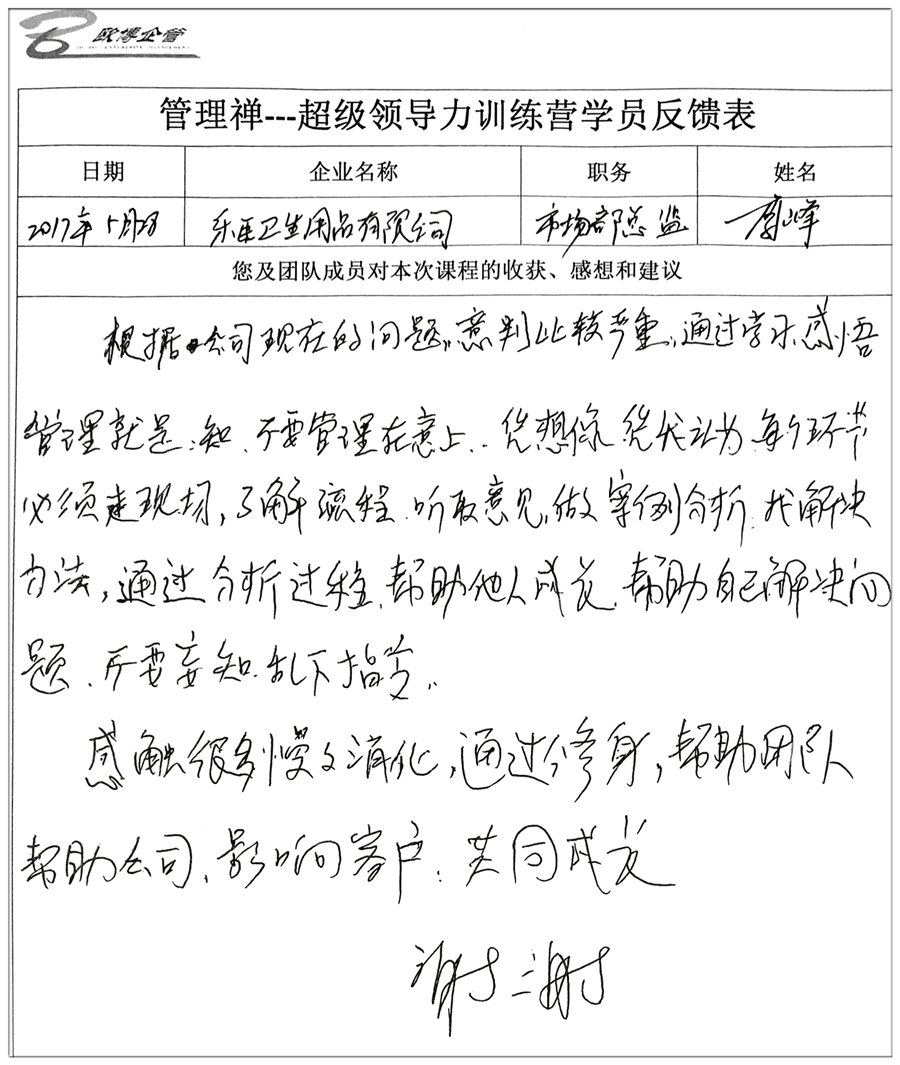 欧博企管
管理禅---超级领导力训练营学员反馈表
日期 企业名称 职务 姓名
2017年5月28 乐 卫生用品有限公司 市场部总监 李峰
您及团队成员对本次课程的收获、感想和建议
根据公司现在的问题，意判比较严重，通过学习感悟
管理就是：知、不要管理在意上、 想 认为 每个环节
必须走现场，了解流程、听取意见，做案例分析、找解决
办法，通过分析过程、帮助他人成长、帮助自己解决问
题、不要妄知、乱下指
感触很多，慢々消化，通过修身，帮助团队
帮助公司、影响客户：共同成长
谢谢